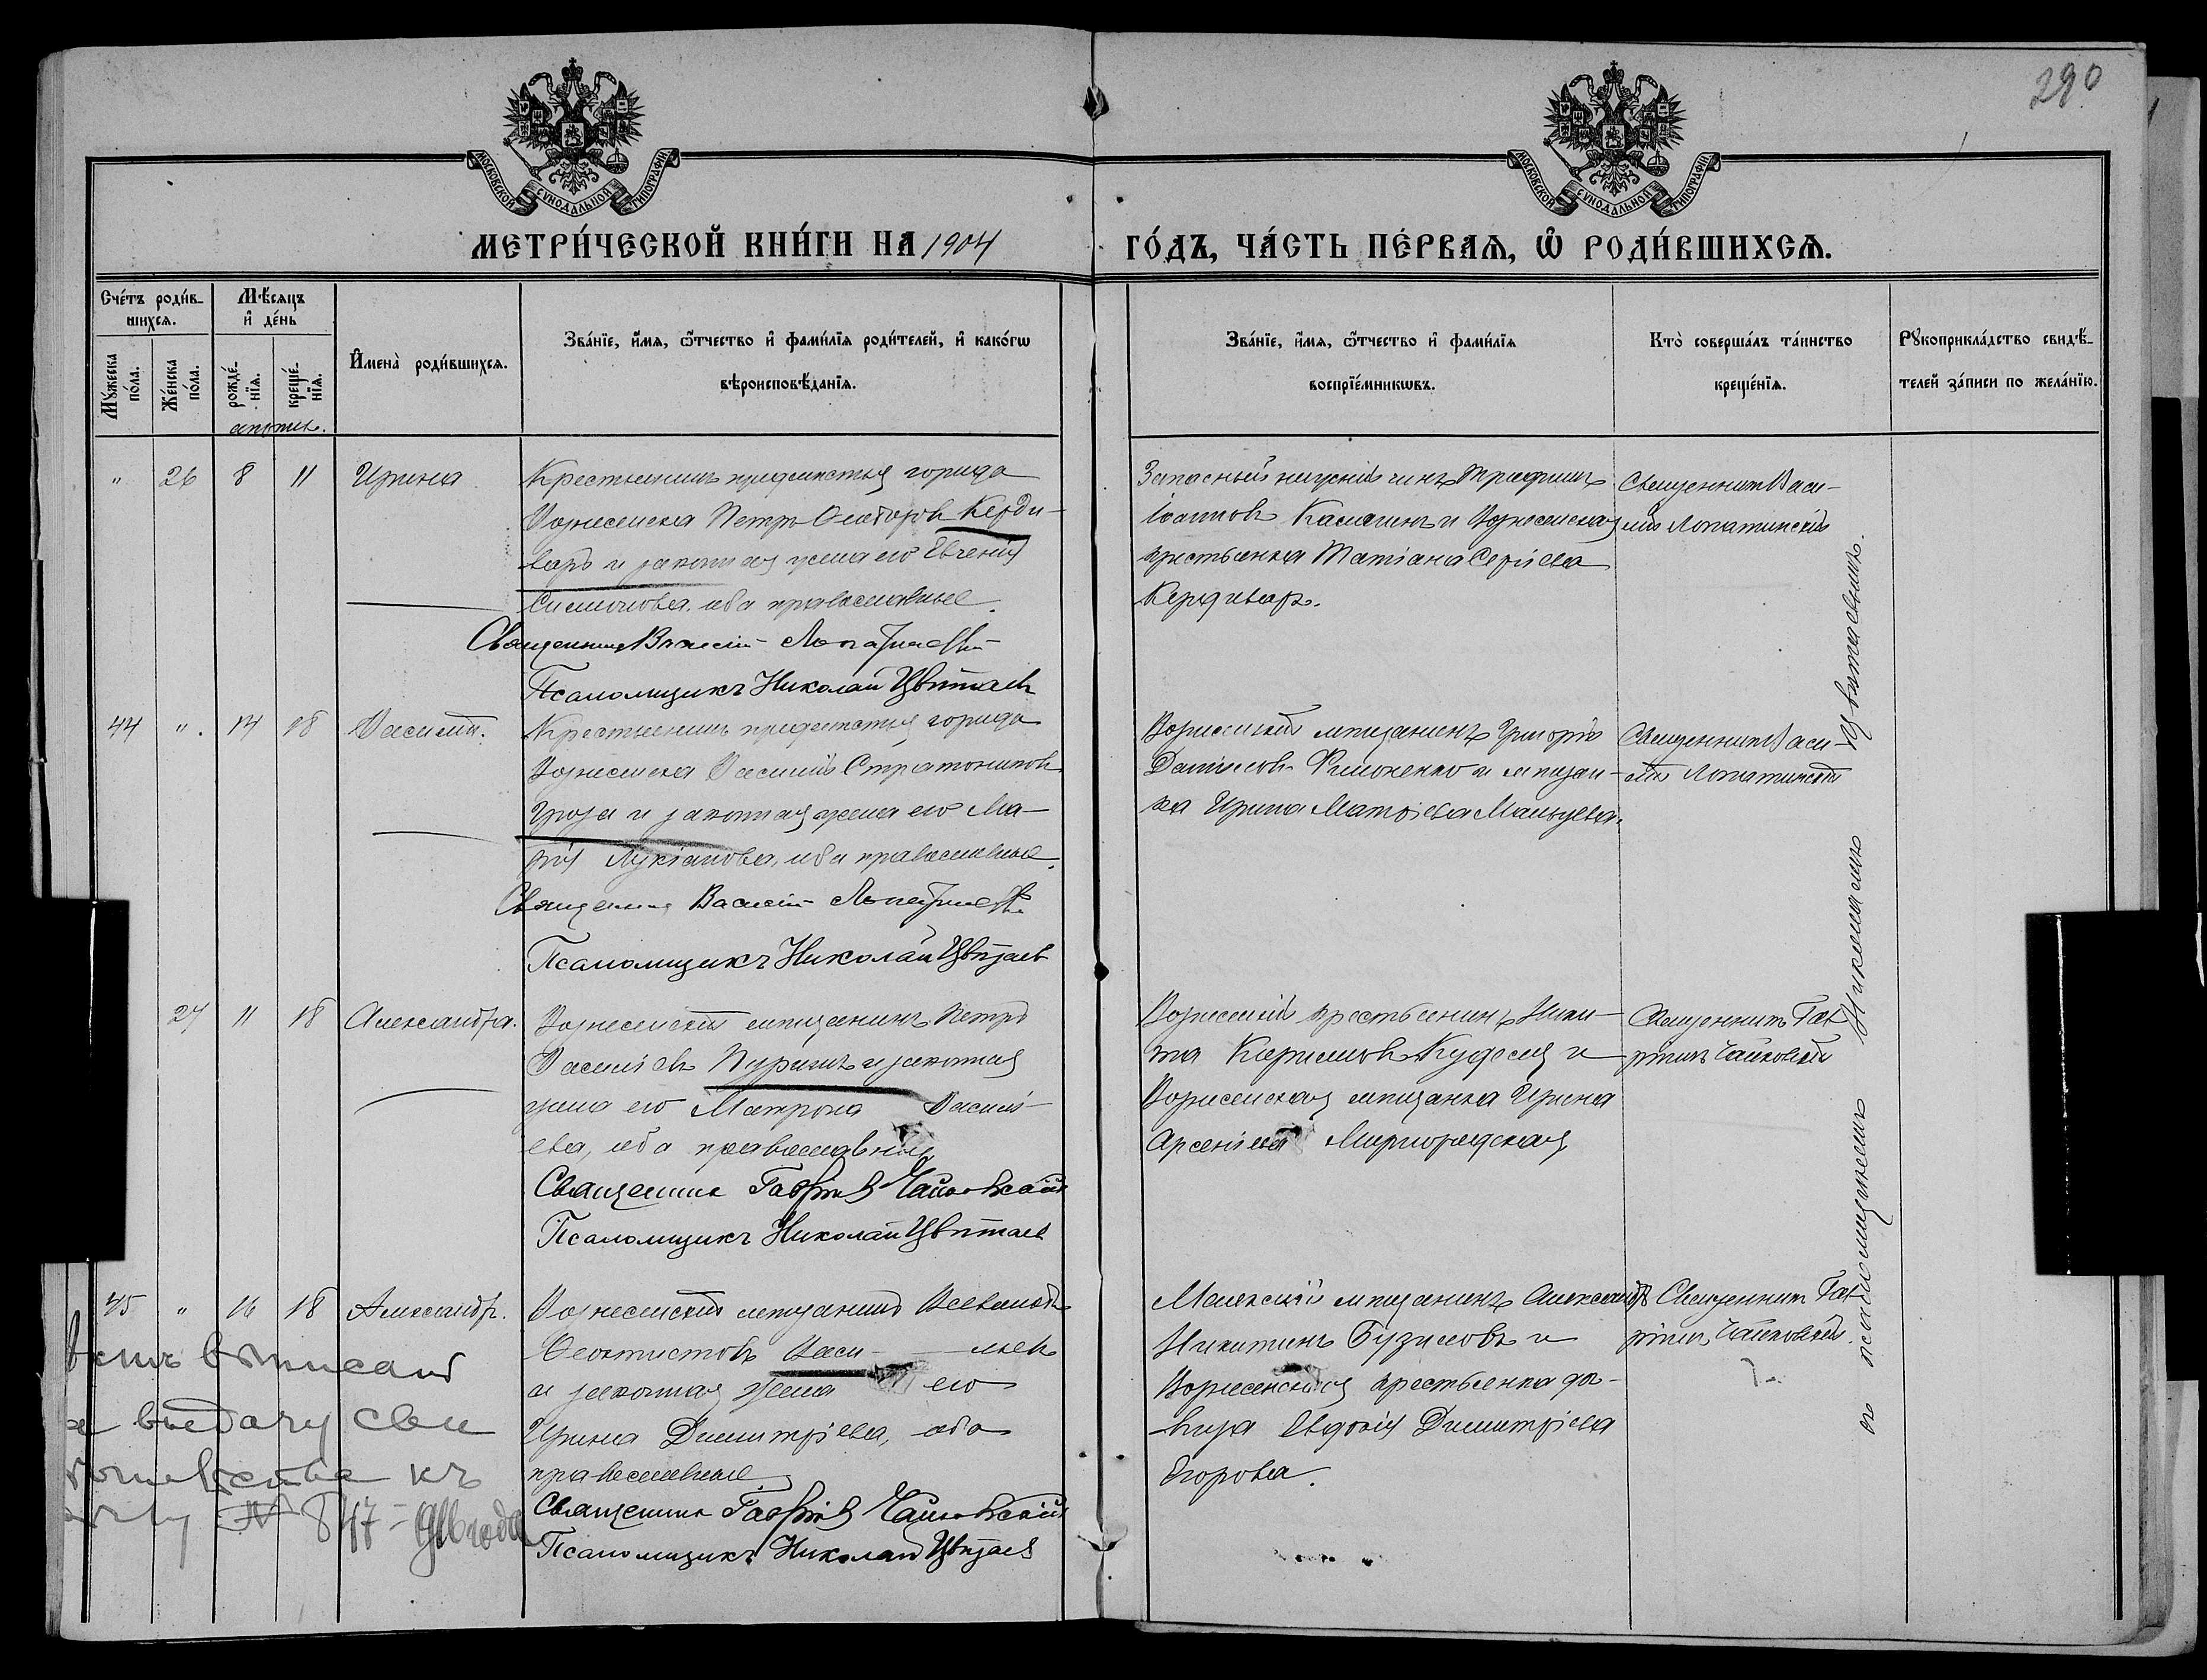 290
МОСКОВСКОЙ СѴНОДАЛЬНОЙ ТИПОГРАФІИ
МОСКОВСКОЙ СѴНОДАЛЬНОЙ ТИПОГРАФІИ
МЕТРИ́ЧЕСКОЙ КНИ́ГИ НА 1904 ГО́ДЪ, ЧА́СТЬ ПЕ́РВАѦ, Ѡ҆ РОДИ́ВШИХСѦ.
Сче́тъ роди́в-
шихсѧ.
Мѣ́сѧцъ
и҆ де́нь
Мꙋ́жеска
по́ла.
Же́нска
по́ла.
рожде́-
нїѧ.
креще́-
нїѧ.
И҆мена̀ роди́вшихсѧ.
Зва́нїе, и҆́мѧ, ѻ҆́тчество и҆ фами́лїѧ роди́телей, и҆ како́гѡ
вѣроисповѣ́данїѧ.
Зва́нїе, и҆́мѧ, ѻ҆́тчество и҆ фами́лїѧ
воспрїе́мникѡвъ.
Кто̀ соверша́лъ та́инство
креще́нїѧ.
Рꙋкоприкла́дство свидѣ́-
телей за́писи по жела́нїю.
апрѣль.
" 26 8 11 Ирина
Крестьянинъ предмѣстья города
Вознесенска Петръ Ѳеодоровъ Керди-
варъ и законная жена его Евгенія
Симеонова, оба православные.
Священникъ Василій Лопатинскій
Псаломщикъ Николай Цвѣтаевъ
Запасный нижній чинъ Трифонъ
Іоанновъ и Вознесенская
крестьянка Татіана Сергіева
Кердиваръ.
Священникъ Васи-
лій Лопатинскій
44 " 14 18 Василій.
Крестьянинъ предмѣстья города
Вознесенска Василій Стратониковъ
Гроза и законная жена его Ма-
рія Лукіанова, оба православные.
Священникъ Василій Лопатинскій
Псаломщикъ Николай Цвѣтаевъ
Вознесенскій мѣщанинъ Григорій
Даніиловъ Филоненко и мѣщан-
ка Ирина Матѳіева Мальцева.
Священникъ Васи-
лій Лопатинскій
27 11 18 Александра.
Вознесенскій мѣщанинъ Петръ
Васильевъ Пуришъ и законная
жена его Матрона Василі-
ева, оба православные
Священникъ Гавріилъ Чайковскій
Псаломщикъ Николай Цвѣтаевъ
Вознесенскій крестьянинъ Ники-
та Кирилловъ и
Вознесенская мѣщанка Ирина
Арсеніева Миргородская
Священникъ Гав-
ріилъ Чайковскій
45 " 16 18 Александръ.
Вознесенскій мѣщанинъ Всеволодъ
Ѳеоктистовъ Васи- льевъ
и законная жена его
Ирина Димитріева, оба
православные
Священникъ Гавріилъ Чайковскій
Псаломщикъ Николай Цвѣтаевъ
мѣщанинъ Александръ
Никитинъ Бузиновъ и
Вознесенская крестьянка дѣ-
вица Евдокія Димитріева
Егорова.
Священникъ Гав-
ріилъ Чайковскій.
съ псаломщикомъ Николаемъ Цвѣтаевымъ.
выписано
выдачу
къ
№ 847
года